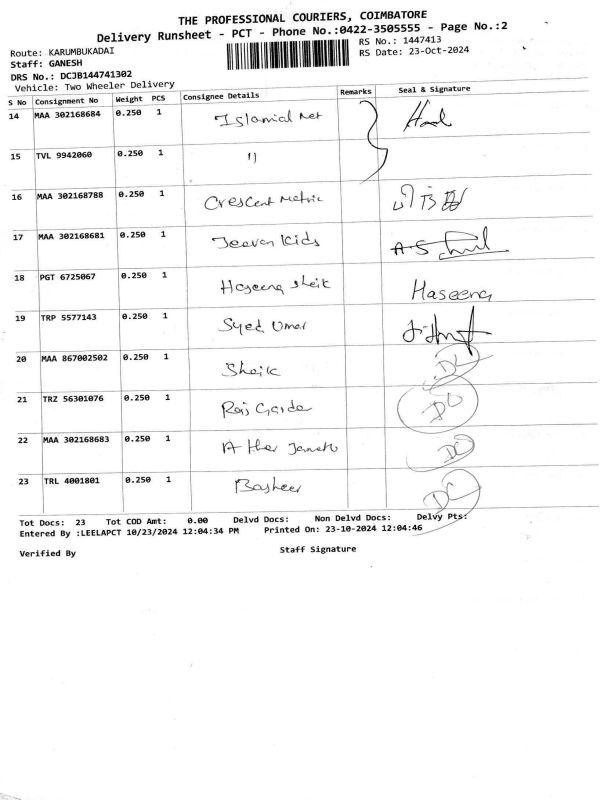 THE PROFESSIONAL COURIERS, COIMBATORE
Delivery Runsheet - PCT - Phone No.:0422-3505555 - Page No.:2
Route: KARUMBUKADAI
RS No.: 1447413
Staff: GANESH
RS Date: 23-Oct-2024
DRS No.: DCJB144741302
Vehicle: Two Wheeler Delivery
S No Consignment No Weight PCS Consignee Details Remarks Seal & Signature
14 MAA 302168684 0.250 1 Islamial Net
15 TVL 9942060 0.250 1 "
16 MAA 302168788 0.250 1 Crescent Metric
17 MAA 302168681 0.250 1 Jeevan Kids
18 PGT 6725067 0.250 1 Haseena Sheik Haseena
19 TRP 5577143 0.250 1 Syed Umar
20 MAA 867002502 0.250 1 Sheik DC
21 TRZ 56301076 0.250 1
22 MAA 302168683 0.250 1
23 TRL 4001801 0.250 1 Basheer DC
Tot Docs: 23 Tot COD Amt: 0.00 Delvd Docs: Non Delvd Docs: Delvy Pts:
Entered By :LEELAPCT 10/23/2024 12:04:34 PM Printed On: 23-10-2024 12:04:46
Verified By Staff Signature